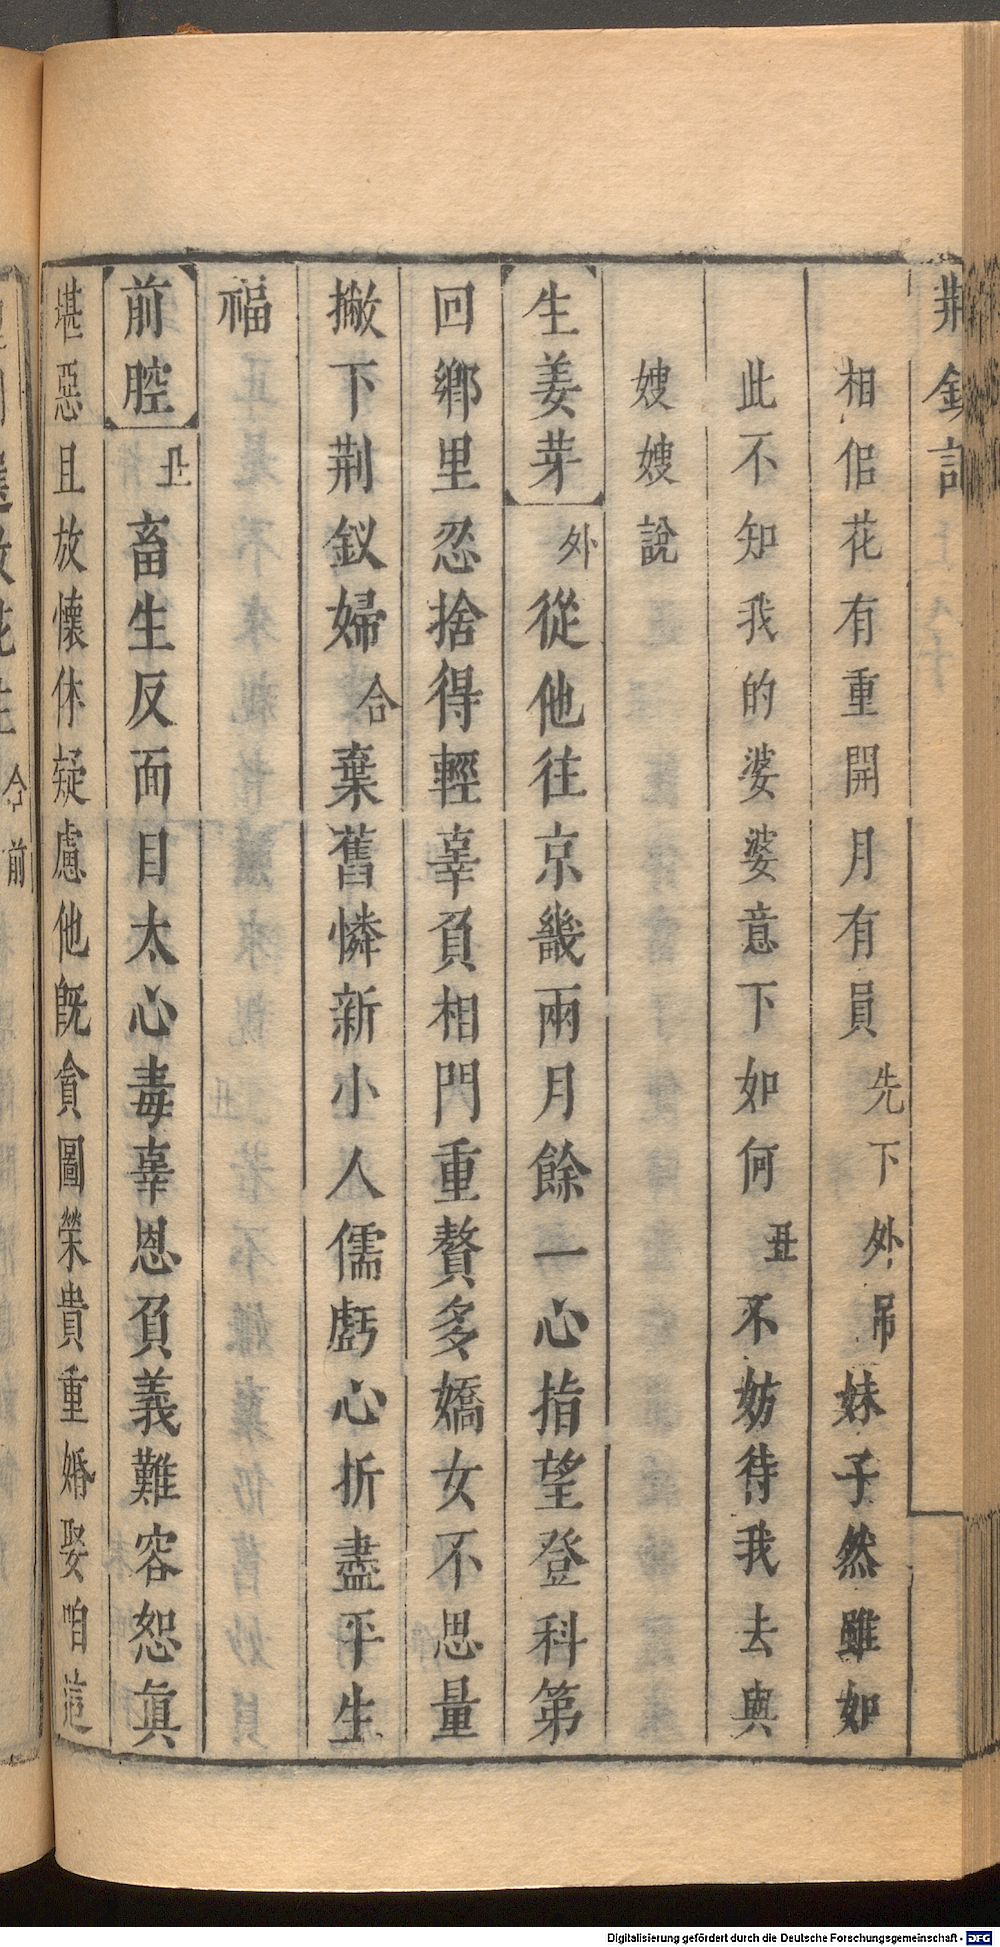 荆釵記
相侶花有重開月有員先下外吊妹子然雖如
此不知我的婆婆意下如何丑不妨待我去與
嫂嫂說
生姜芽外從他往京畿兩月餘一心指望登科第
回鄉里忍捨得輕辜負相門重贅多嬌女不思量
撇下荆釵婦合棄舊憐新小人儒虧心折盡平生
福
前腔丑畜生反面目太心毒辜恩負義難容恕真
堪惡且放懷休疑慮他旣貪圖榮貴重婚娶咱這
合前
Digitalisierung gefördert durch die Deutsche Forschungsgemeinschaft - DFG